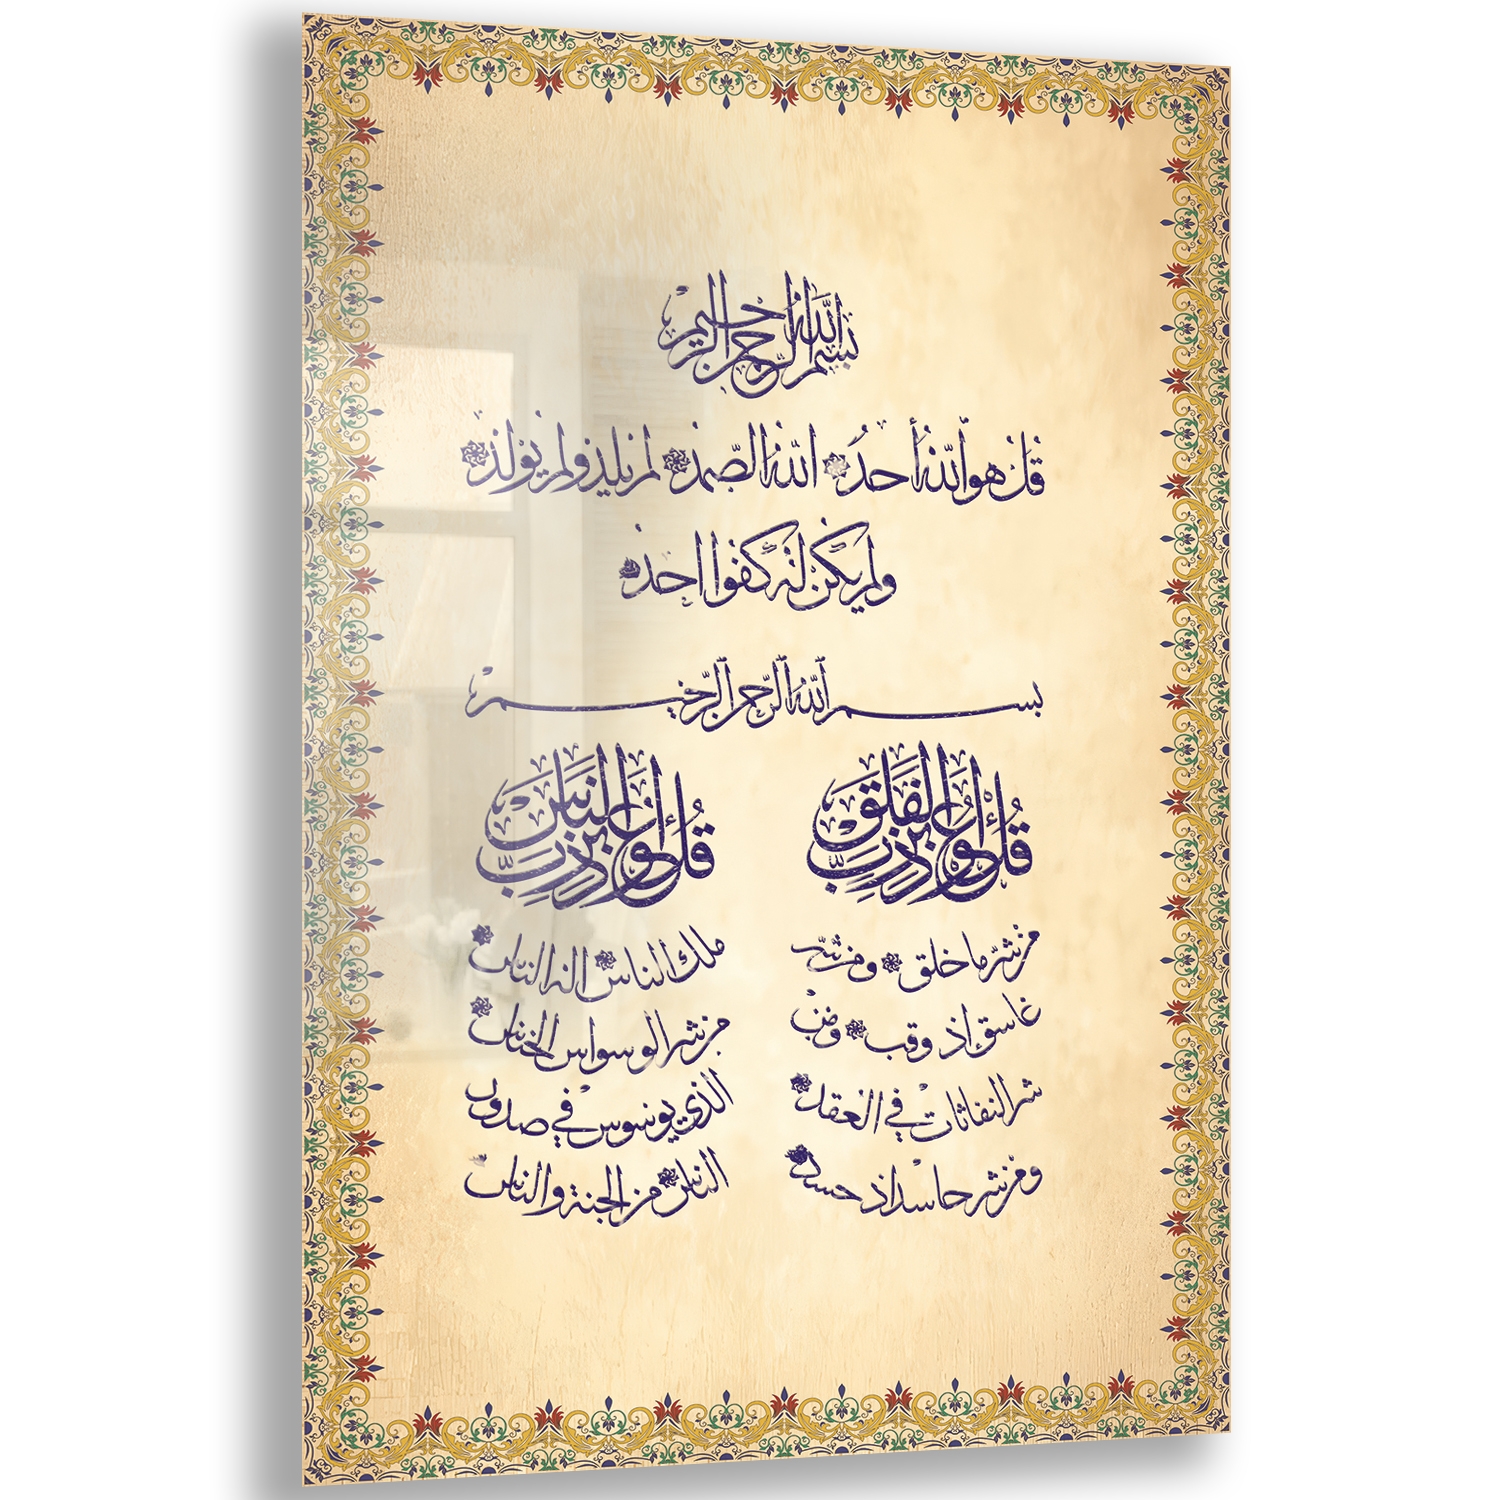 بسم الله الرحمن الرحيم
قل هو الله أحد الله الصمد لم يلد ولم يولد
ولم يكن له كفوا احد
بسم الله الرحمن الرحيم
قل أعوذ برب الفلق
من شر ما خلق ومن شر
غاسق اذ وقب ومن
شر النفاثات في العقد
ومن شر حاسد اذ حسد
قل أعوذ برب الناس
ملك الناس اله الناس
من شر الوسواس الخناس
الذي يوسوس في صدور
الناس من الجنة والناس